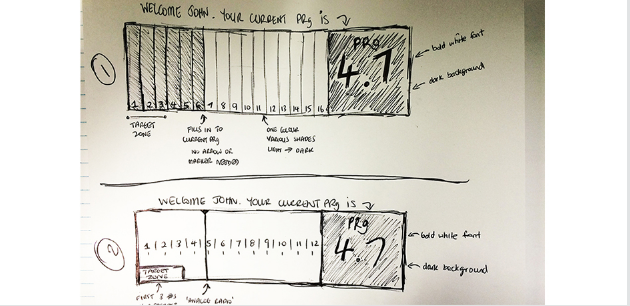 WELCOME JOHN. YOUR CURRENT PRg IS
1
1 2 3 4 5 6 7 8 9 10 11 12 13 14 15 16
PRg
4.7
bold white font
dark background
TARGET
ZONE
FILLS IN TO
CURRENT PRg
NO ARROW OR
MARKER NEEDED
ONE COLOUR
VARIOUS SHADES
LIGHT → DARK
WELCOME JOHN. YOUR CURRENT PRg IS
2
1 | 2 | 3 | 4 | 5 | 6 | 7 | 8 | 9 | 10 | 11 | 12
PRg
4.7
bold white font
dark background
TARGET
ZONE
FIRST 3 #s
'ANALOG RADIO'